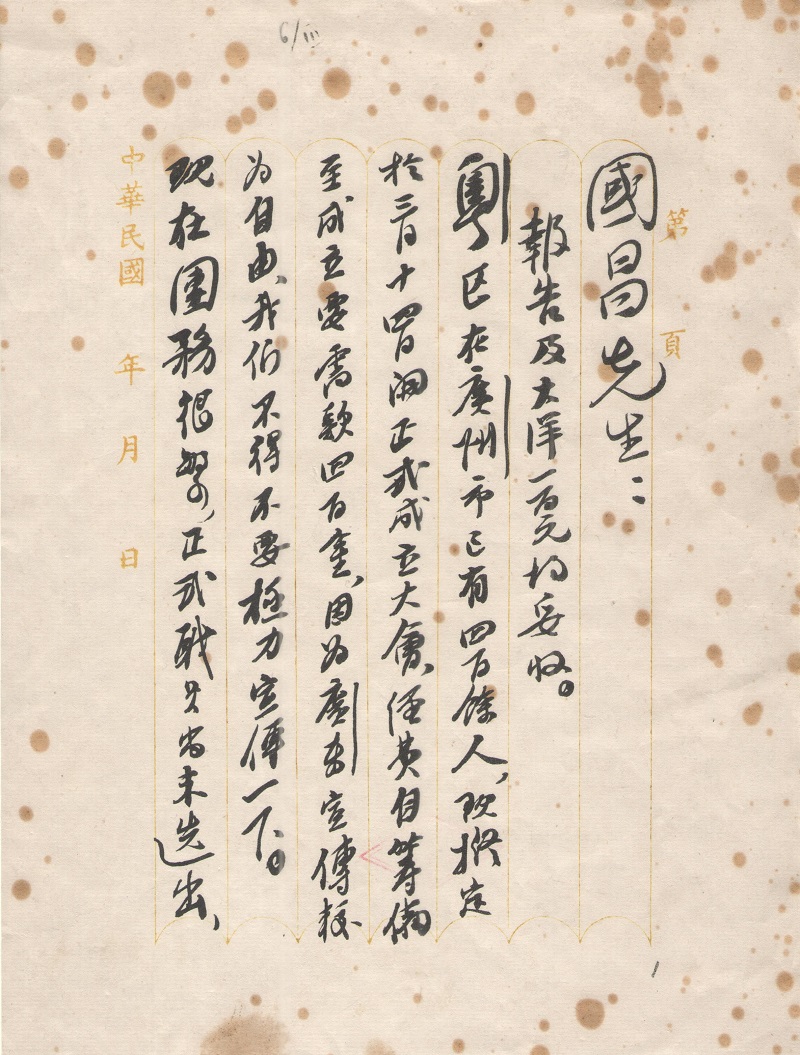 6/III
第 頁
國昌先生：
報告及大洋一百元均妥收。
粵區在廣州市已有四百餘人，現擬定
於三月十四日開正式成立大會，經費自籌備
至成立要需款四百塊，因為廣東宣傳較
為自由，我们不得不要極力宣傳一下。
現在團務很繁，正式職员尚未选出，
中華民國 年 月 日
1